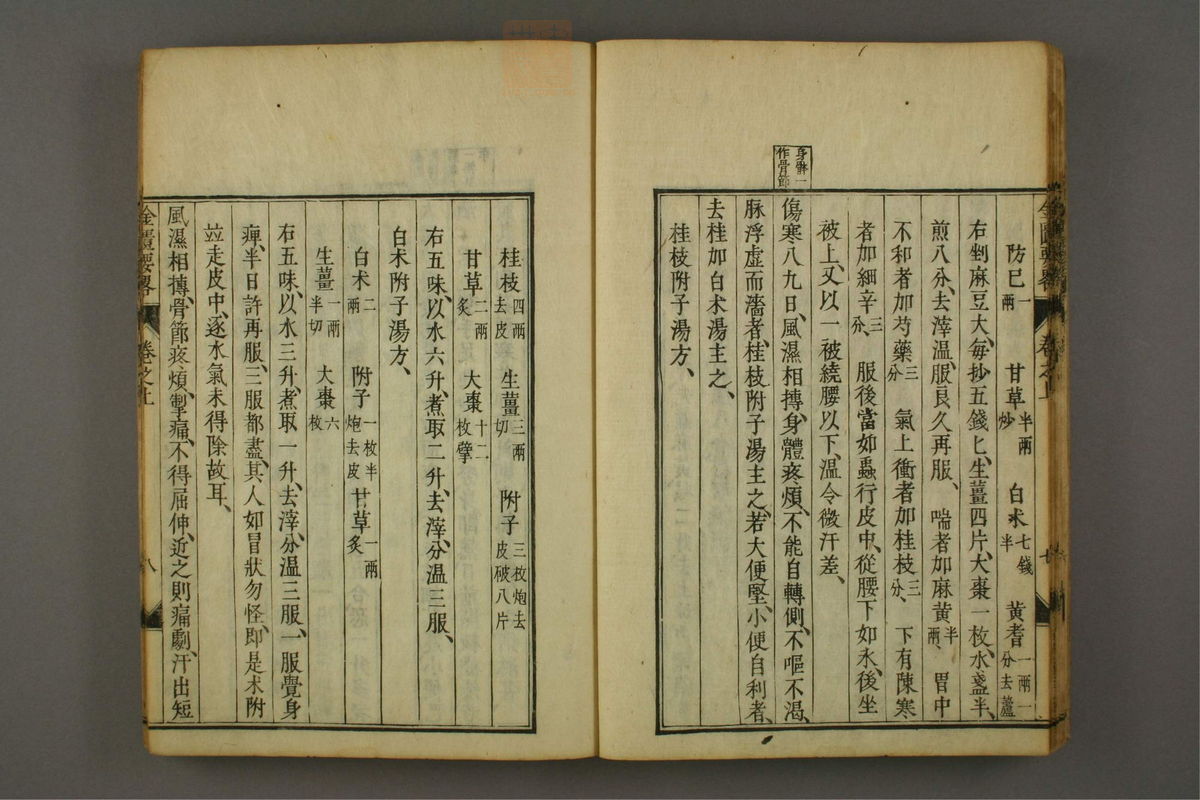 身體一
作骨節
防已一兩 甘草半兩炒 白朮七錢半 黃耆一兩一分去蘆
右剉麻豆大、每抄五錢匕、生薑四片、大棗一枚、水盞半、
煎八分、去滓溫服、良久再服、 喘者加麻黃半兩、 胃中
不和者加芍藥三分 氣上衝者加桂枝三分、 下有陳寒
者加細辛三分、 服後當如蟲行皮中、從腰下如氷、後坐
被上、又以一被繞腰以下、溫令微汗差、
傷寒八九日、風濕相摶、身體疼煩、不能自轉側、不嘔不渴、
脉浮虛而濇者、桂枝附子湯主之、若大便堅、小便自利者、
去桂加白朮湯主之、
桂枝附子湯方、
金匱要畧 卷之上 七
桂枝四兩去皮 生薑三兩切 附子三枚炮去皮破八片
甘草二兩炙 大棗十二枚擘
右五味、以水六升、煮取二升、去滓、分溫三服、
白朮附子湯方、
白朮二兩 附子一枚半炮去皮 甘草一兩炙
生薑一兩半切 大棗六枚
右五味、以水三升、煮取一升、去滓、分溫三服、一服覺身
痺、半日許再服、三服都盡、其人如冒狀勿怪、即是朮附
竝走皮中、逐水氣未得除故耳、
風濕相摶、骨節疼煩、掣痛、不得屈伸、近之則痛劇、汗出短
金匱要畧 卷之上 八